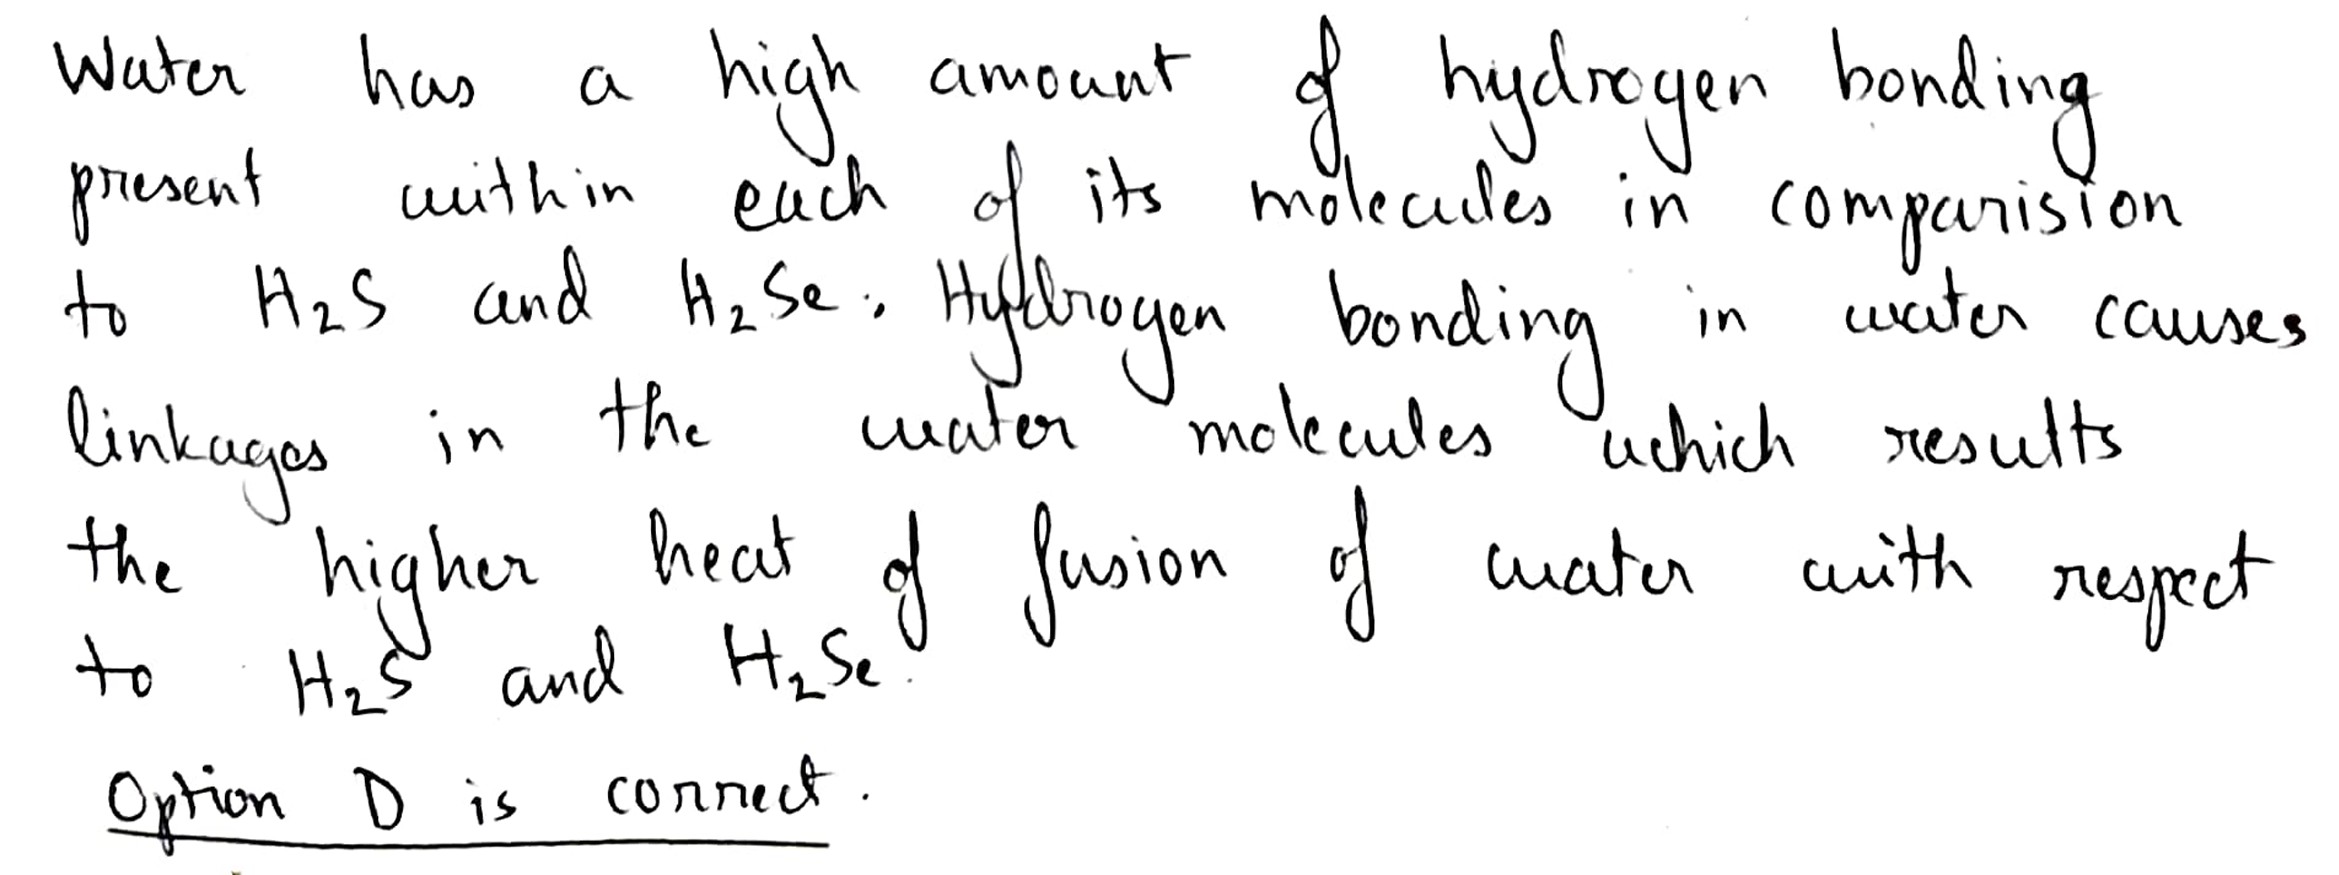 Water has a high amount of hydrogen bonding
present within each of its molecules in comparision
to H₂S and H₂Se. Hydrogen bonding in water causes
linkages in the water molecules which results
the higher heat of fusion of water with respect
to H₂S and H₂Se.
Option D is correct.